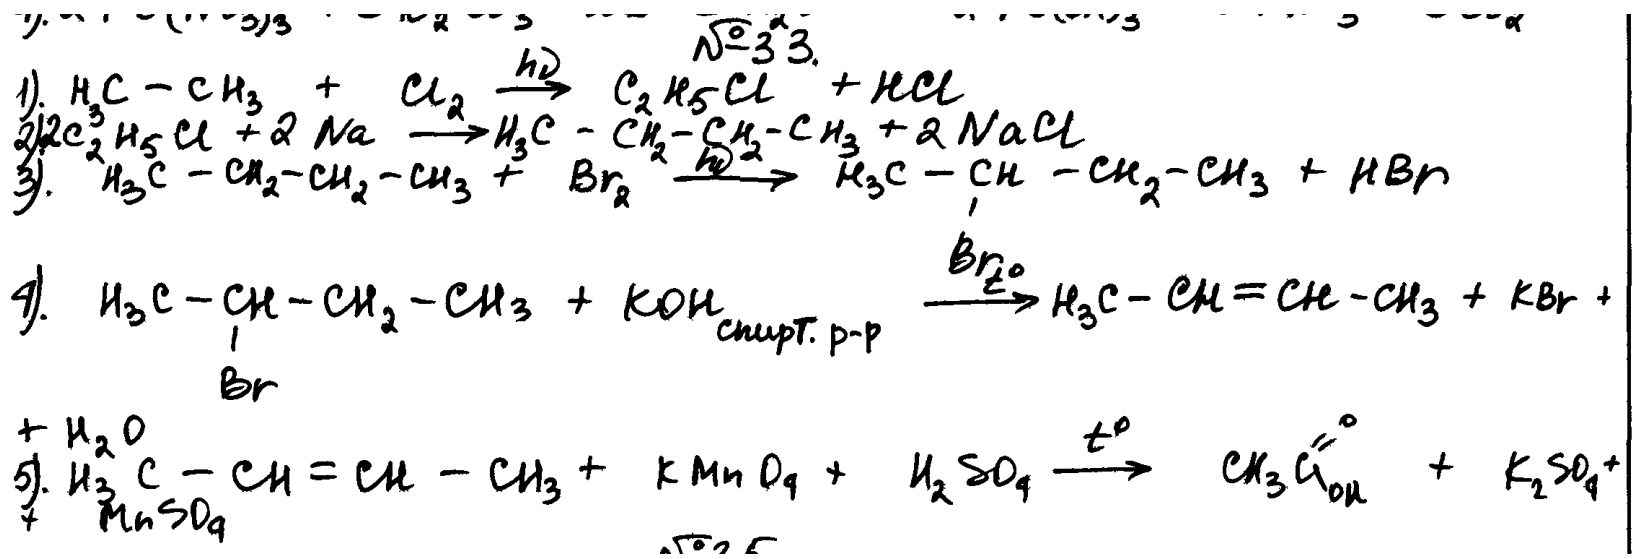 №33.
1). H₃C – CH₃ + Cl₂ —hν→ C₂H₅Cl + HCl
2) 2C₂H₅Cl + 2Na ⟶ H₃C – CH₂–CH₂–CH₃ + 2NaCl
3). H₃C – CH₂–CH₂–CH₃ + Br₂ —hν→ H₃C – CH – CH₂–CH₃ + HBr
Br
4). H₃C – CH – CH₂ – CH₃ + KOH спирт. р-р —t°→ H₃C – CH = CH – CH₃ + KBr +
Br
+ H₂O
5). H₃C – CH = CH – CH₃ + KMnO₄ + H₂SO₄ —t°→ CH₃C=O OH + K₂SO₄ +
+ MnSO₄